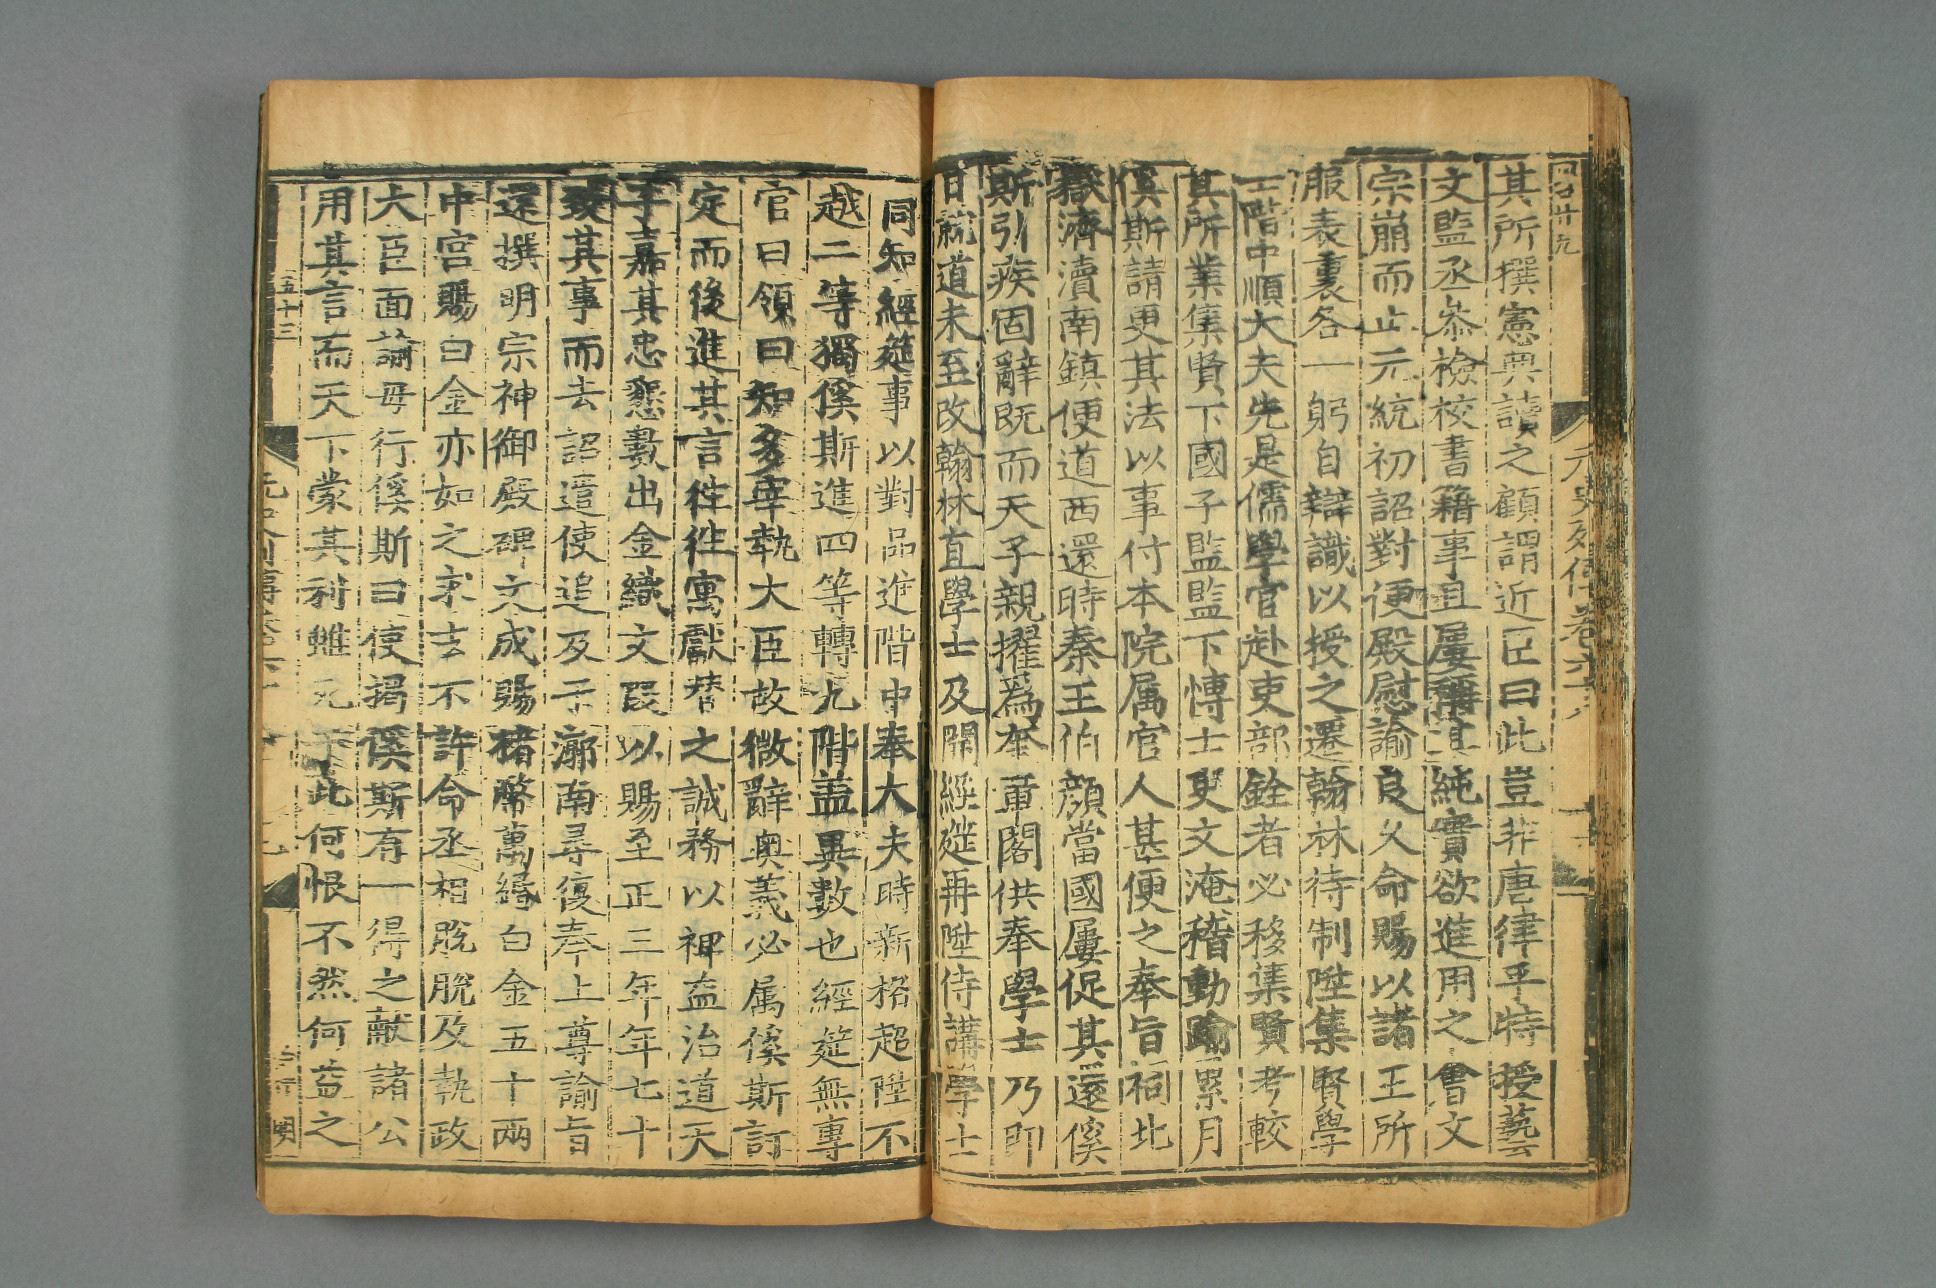 其所撰憲典讀之顧謂近臣曰此豈非唐律乎特授藝
文監丞叅檢校書籍事且屢稱其純實欲進用之會文
宗崩而止元統初詔對便殿慰諭良久命賜以諸王所
服表裏各一躬自辯識以授之遷翰林待制陞集賢學
士階中順大夫先是儒學官赴吏部銓者必移集賢考較
其所業集賢下國子監監下博士吏文淹稽動踰累月
傒斯請更其法以事付本院属官人甚便之奉旨祠北
嶽濟瀆南鎮便道西還時秦王伯顔當國屢促其還傒
斯引疾固辭既而天子親擢為奎章閣供奉學士乃即
日就道未至改翰林直學士及開經筵再陞侍講學士
同知經筵事以對品進階中奉大夫時新格超陞不
越二等獨傒斯進四等轉九階盖異數也經筵無專
官曰領曰知多宰執大臣故微辭奥義必属傒斯訂
定而後進其言徃徃寓獻替之誠務以裨益治道天
子嘉其忠懇數出金織文段以賜至正三年年七十
致其事而去詔遣使追及于漷南尋復奉上尊諭旨
還撰明宗神御殿碑文成賜楮幣萬緡白金五十兩
中宫賜白金亦如之求去不許命丞相脫脫及執政
大臣面諭毋行傒斯曰使揭傒斯有一得之獻諸公
用其言而天下蒙其利雖死于此何恨不然何益之
五十三